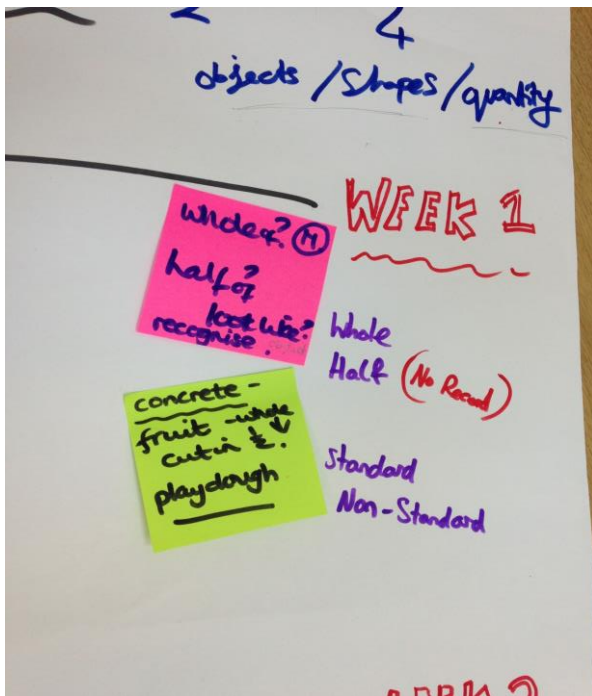 2 4
objects / shapes / quantity
WEEK 1
whole of? M
half of?
look like?
recognise.
Whole
Half (No Record)
concrete -
fruit - whole
cut in ½.
playdough
Standard
Non-Standard
WEEK 2